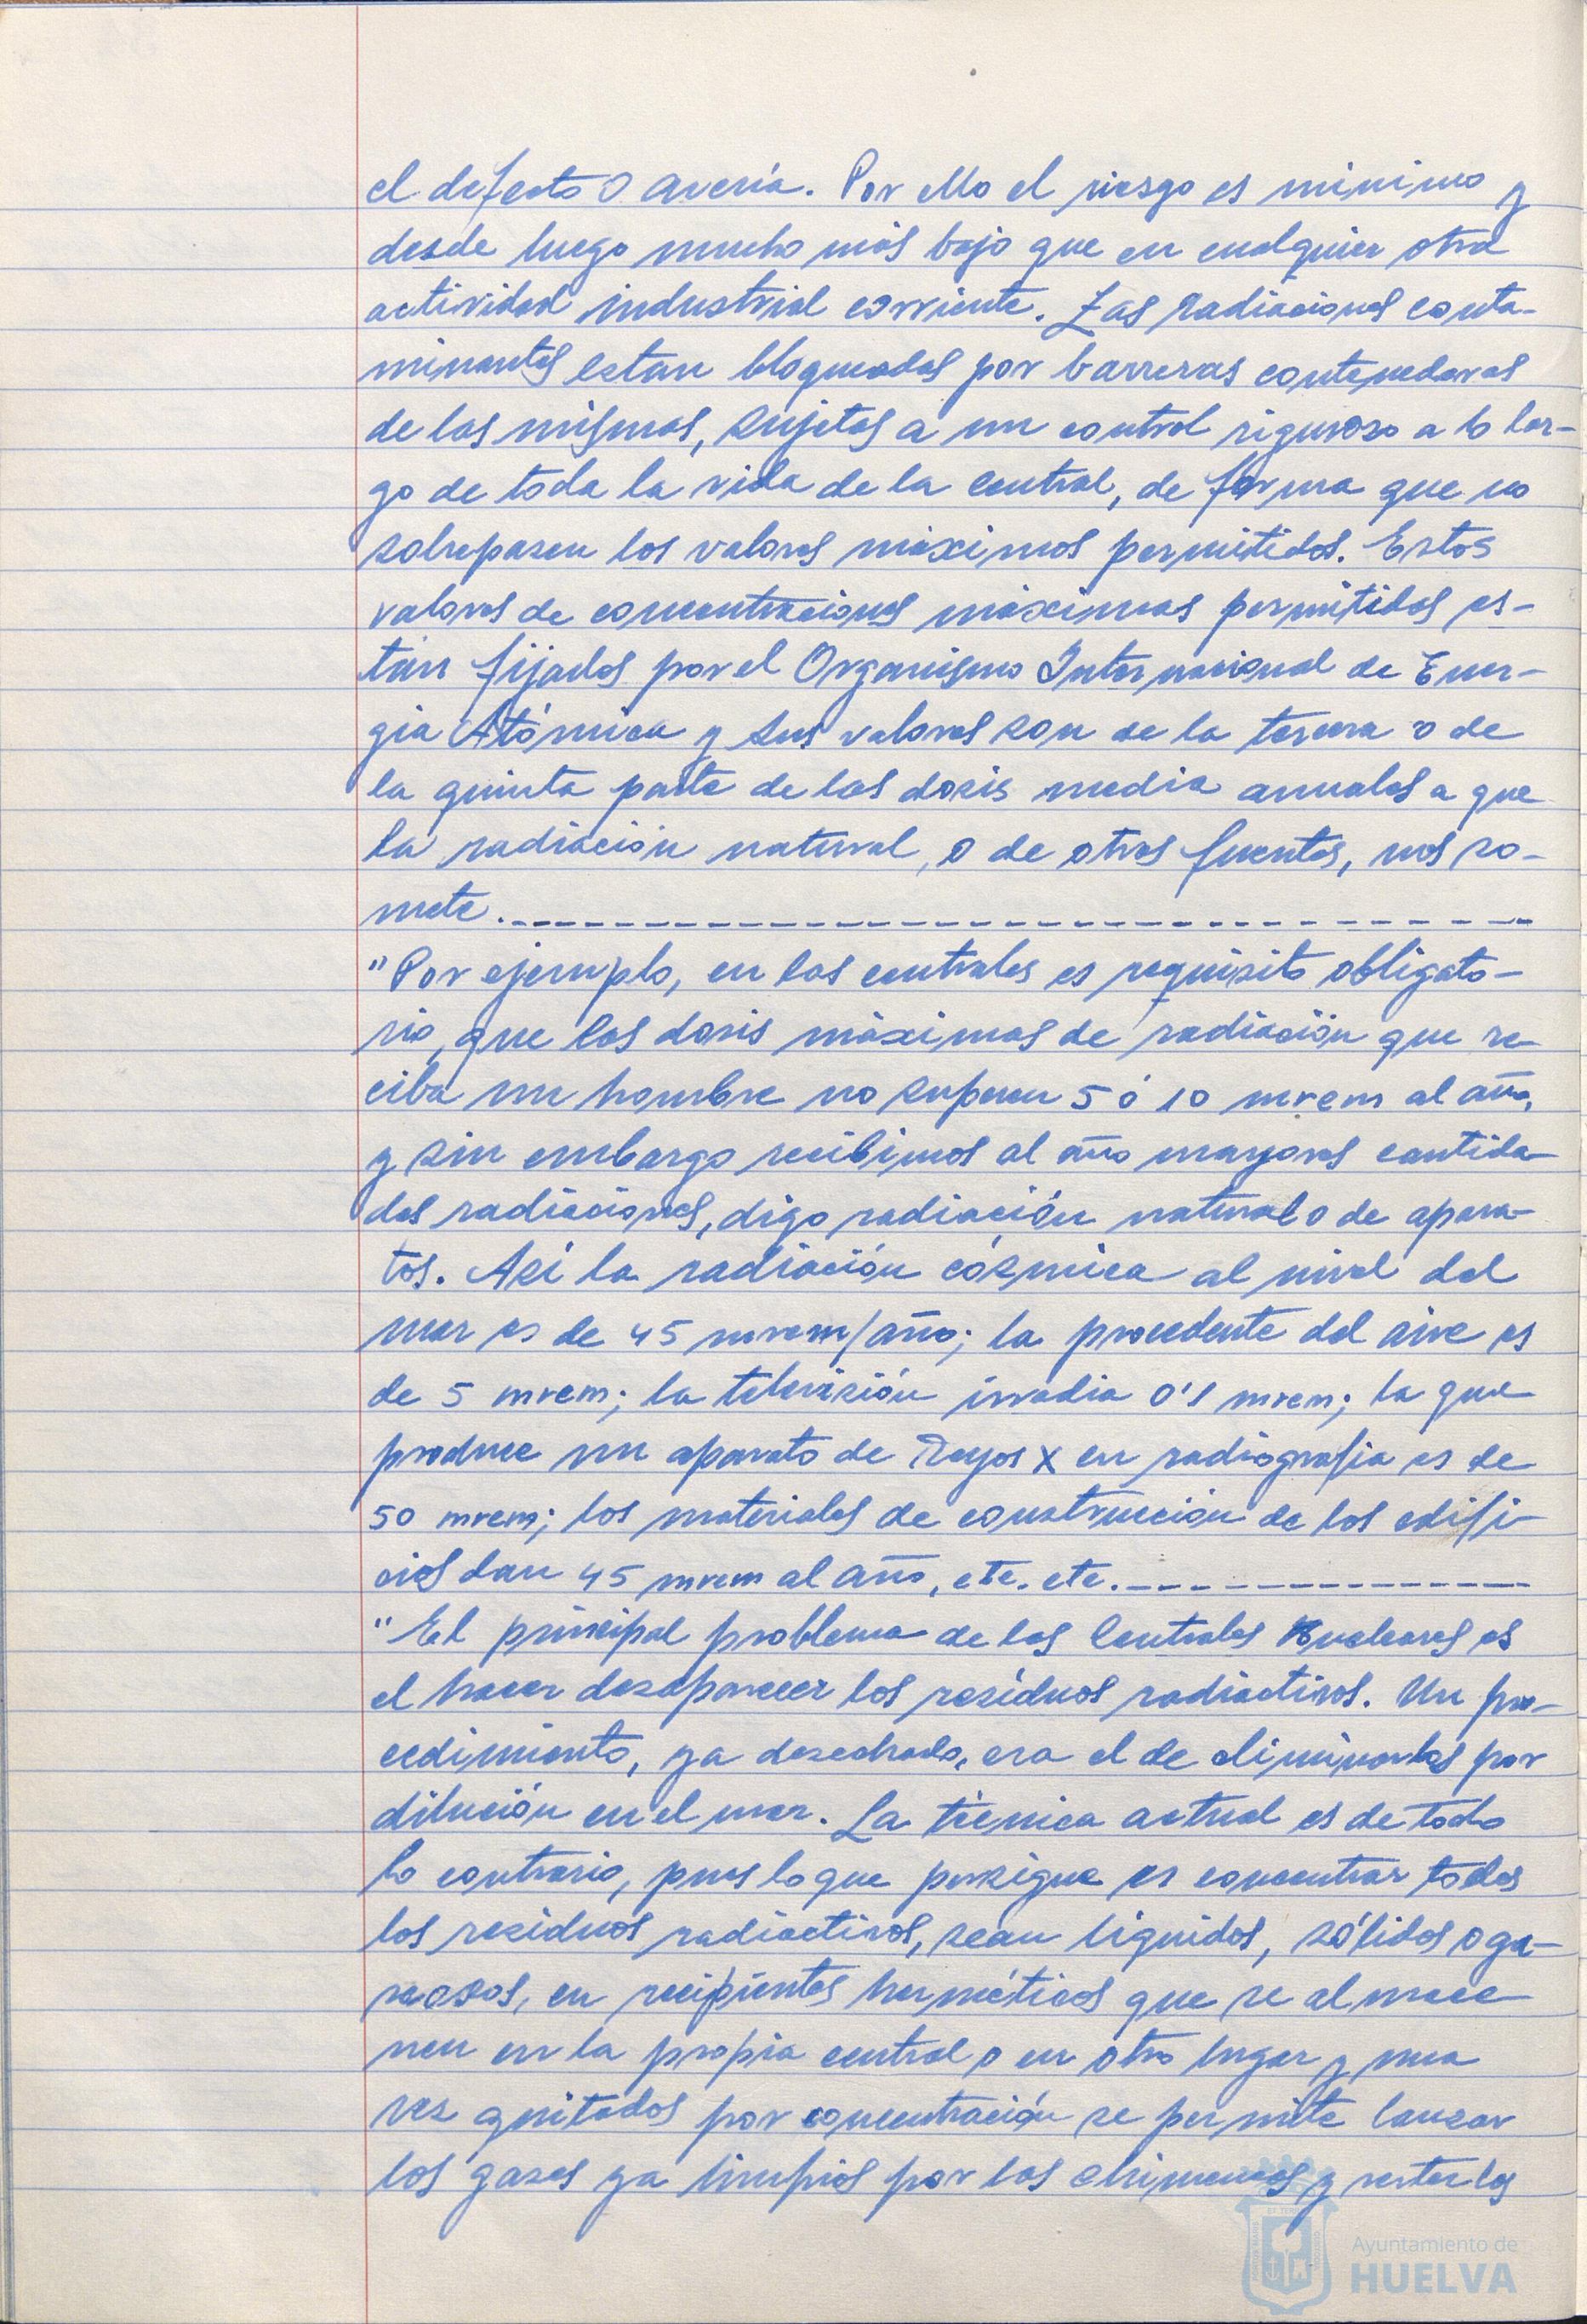 el defecto o avería. Por ello el riesgo es mínimo y
desde luego mucho más bajo que en cualquier otra
actividad industrial corriente. Las radiaciones conta-
minantes estan bloqueadas por barreras contenedoras
de las mismas, sujetas a un control riguroso a lo lar-
go de toda la vida de la central, de forma que no
sobrepasen los valores máximos permitidos. Estos
valores de concentraciones máximas permitidas es-
tán fijados por el Organismo Internacional de Ener-
gía Atómica y sus valores son de la tercera o de
la quinta parte de las dosis media anuales a que
la radiación natural, o de otras fuentes, nos so-
mete.
"Por ejemplo, en las centrales es requisito obligato-
rio, que las dosis máximas de radiación que re-
ciba un hombre no superen 5 ó 10 mrem al año,
y sin embargo recibimos al año mayores cantida-
des radiaciones, digo radiación natural o de apara-
tos. Así la radiación cósmica al nivel del
mar es de 45 mrem/año; la procedente del aire es
de 5 mrem; la televisión irradia 0'1 mrem; la que
produce un aparato de Rayos X en radiografia es de
50 mrem; los materiales de construcción de los edifi-
cios dan 45 mrem al año, etc. etc.
"El principal problema de las Centrales Nucleares es
el hacer desaparecer los resíduos radiactivos. Un pro-
cedimiento, ya desechado, era el de eliminarlos por
dilución en el mar. La técnica actual es de todo
lo contrario, pues lo que persigue es concentrar todos
los residuos radiactivos, sean líquidos, sólidos o ga-
seosos, en recipientes herméticos que se almace-
nen en la propia central o en otro lugar y una
vez quitados por concentración se permite lanzar
los gases ya limpios por las chimeneas y verter los
Ayuntamiento de
HUELVA